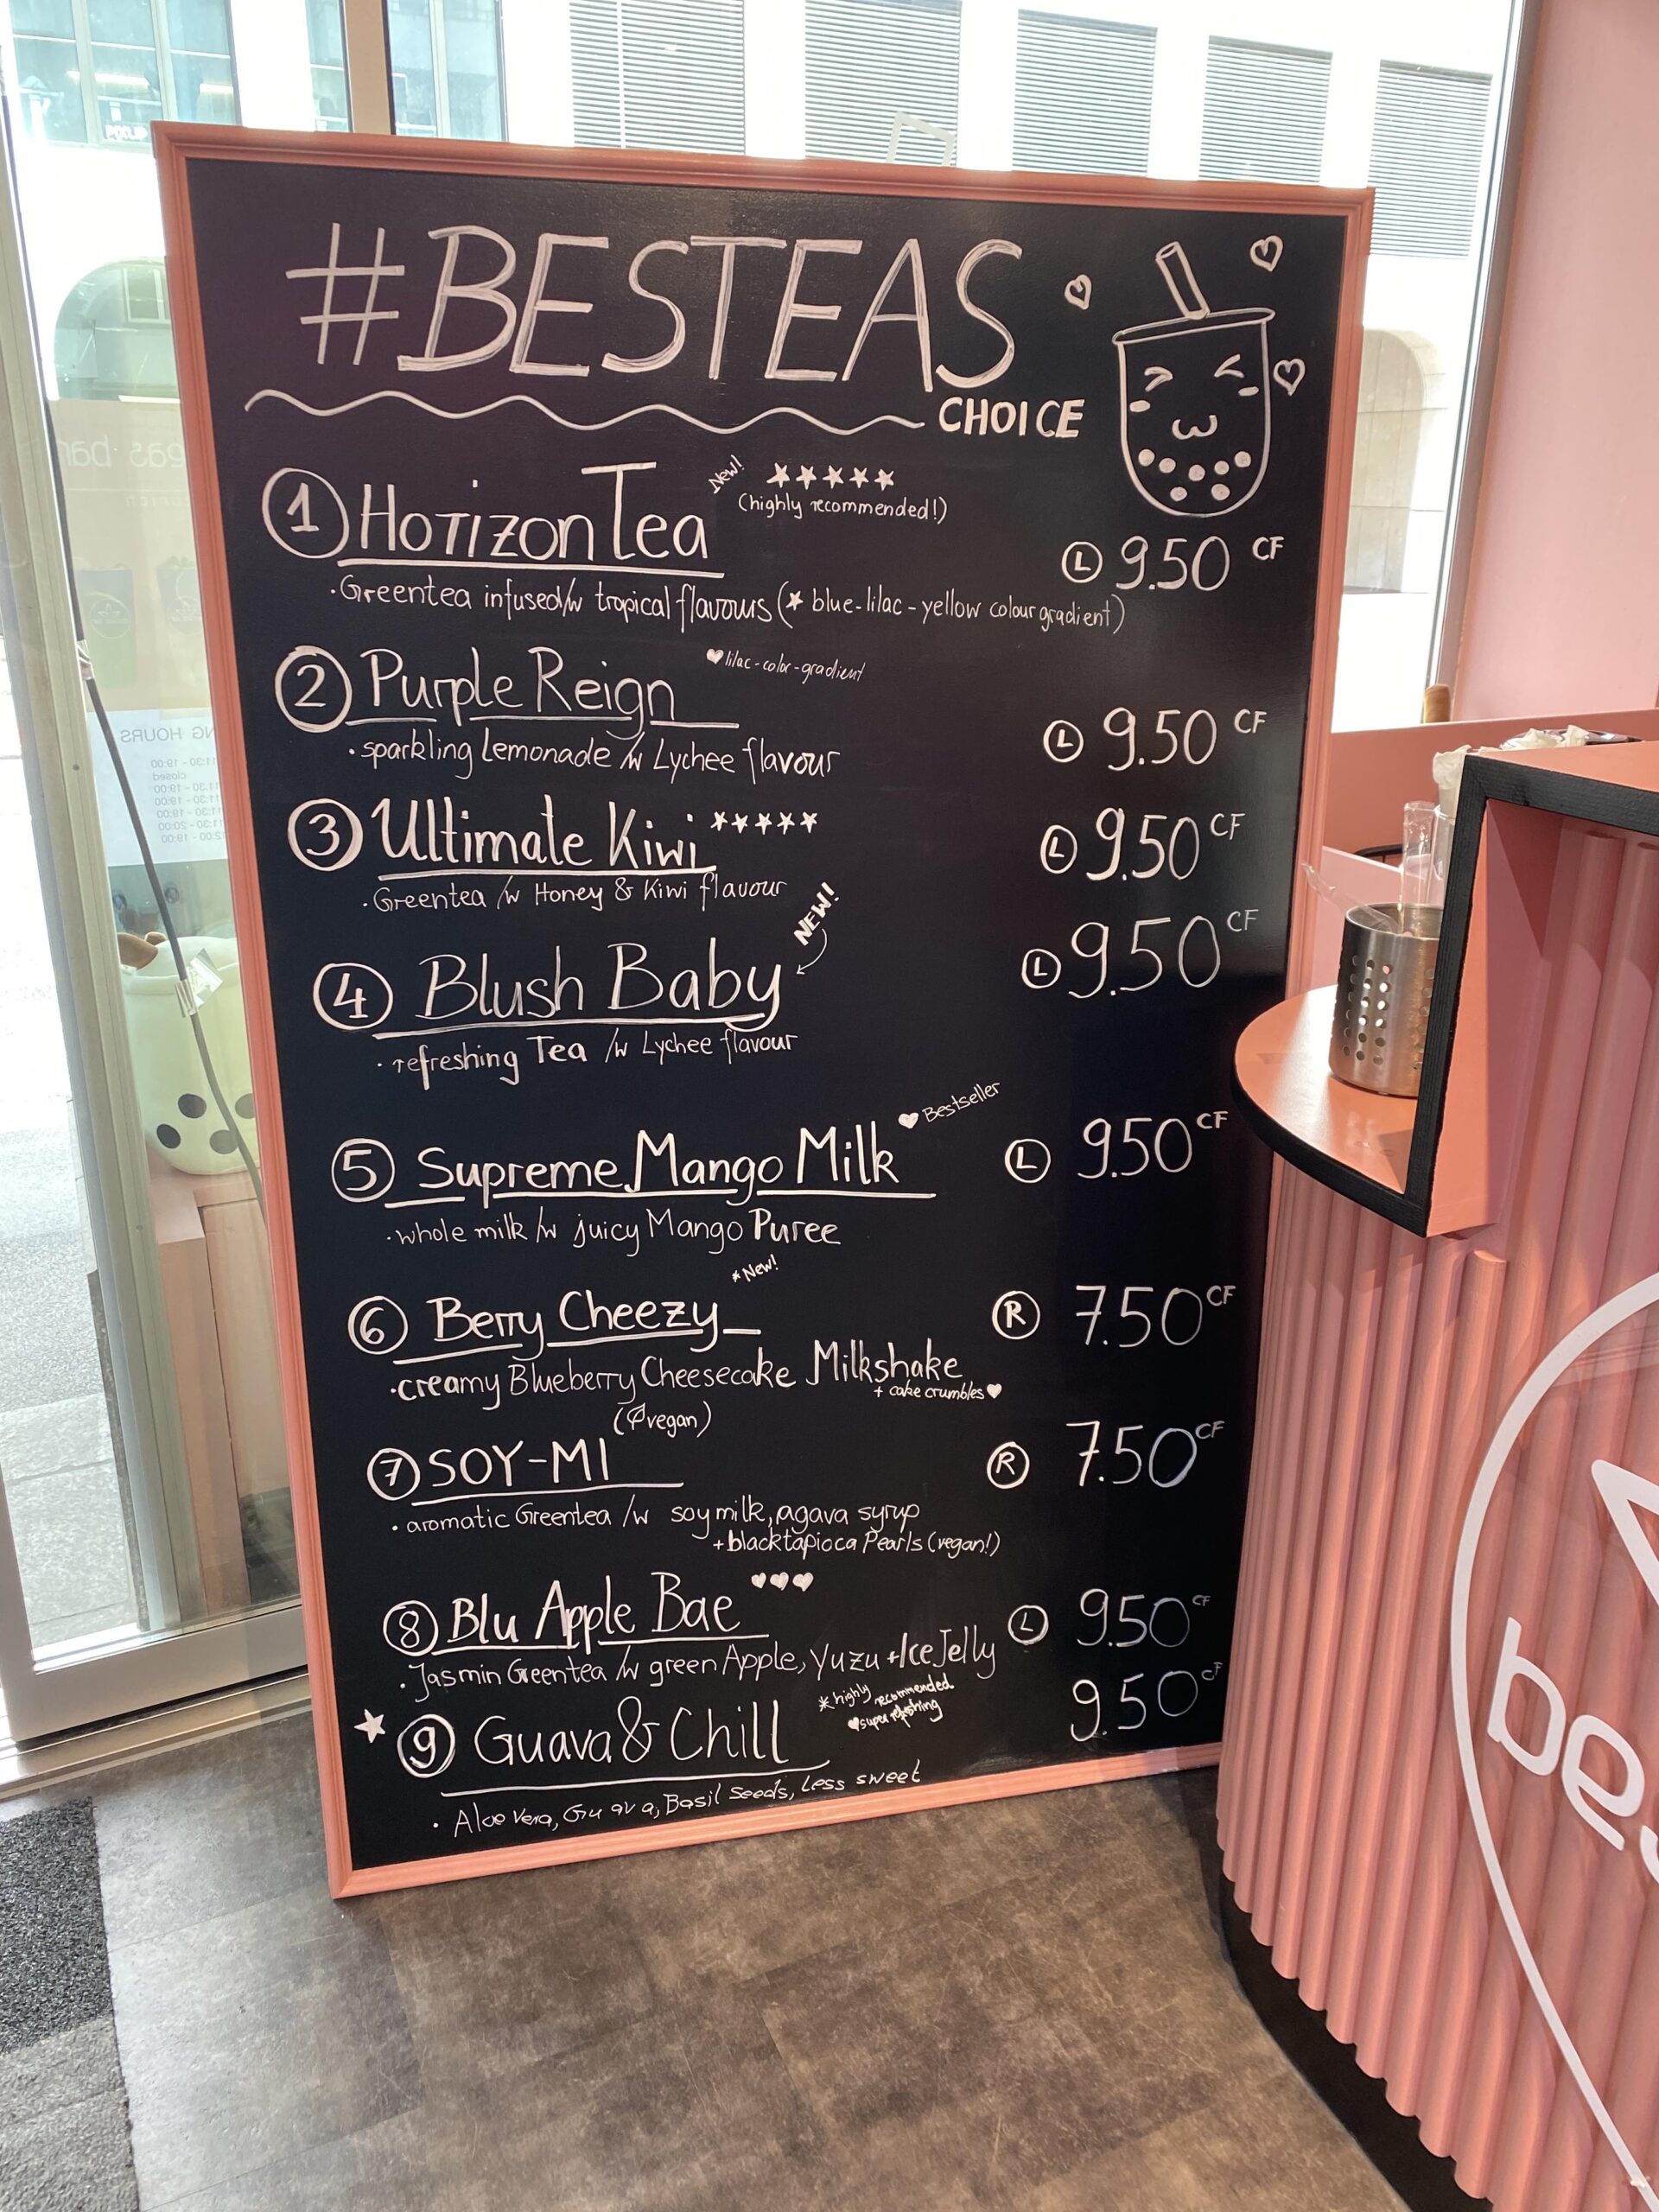 #BESTEAS
CHOICE
1 Horizon Tea
New!
(highly recommended!)
L 9.50 CF
·Greentea infused/w tropical flavours (* blue-lilac-yellow colour gradient)
2 Purple Reign
♥ lilac-color-gradient
L 9.50 CF
·sparkling Lemonade /w Lychee flavour
3 Ultimate Kiwi
L 9.50 CF
·Greentea /w Honey & Kiwi flavour
NEW!
4 Blush Baby
L 9.50 CF
·refreshing Tea /w Lychee flavour
♥ Bestseller
5 Supreme Mango Milk
L 9.50 CF
·whole milk /w juicy Mango Puree
*New!
6 Berry Cheezy
R 7.50 CF
·creamy Blueberry Cheesecake Milkshake
+ cake crumbles ♥
(vegan)
7 SOY-MI
R 7.50 CF
·aromatic Greentea /w soymilk, agava syrup
+blacktapioca Pearls (vegan!)
8 Blu Apple Bae ♥♥♥
L 9.50 CF
·Jasmin Greentea /w green Apple, Yuzu + Ice Jelly
9 Guava & Chill
*highly recommended
♥super refreshing
9.50 CF
·Aloe Vera, Guava, Basil Seeds, Less sweet